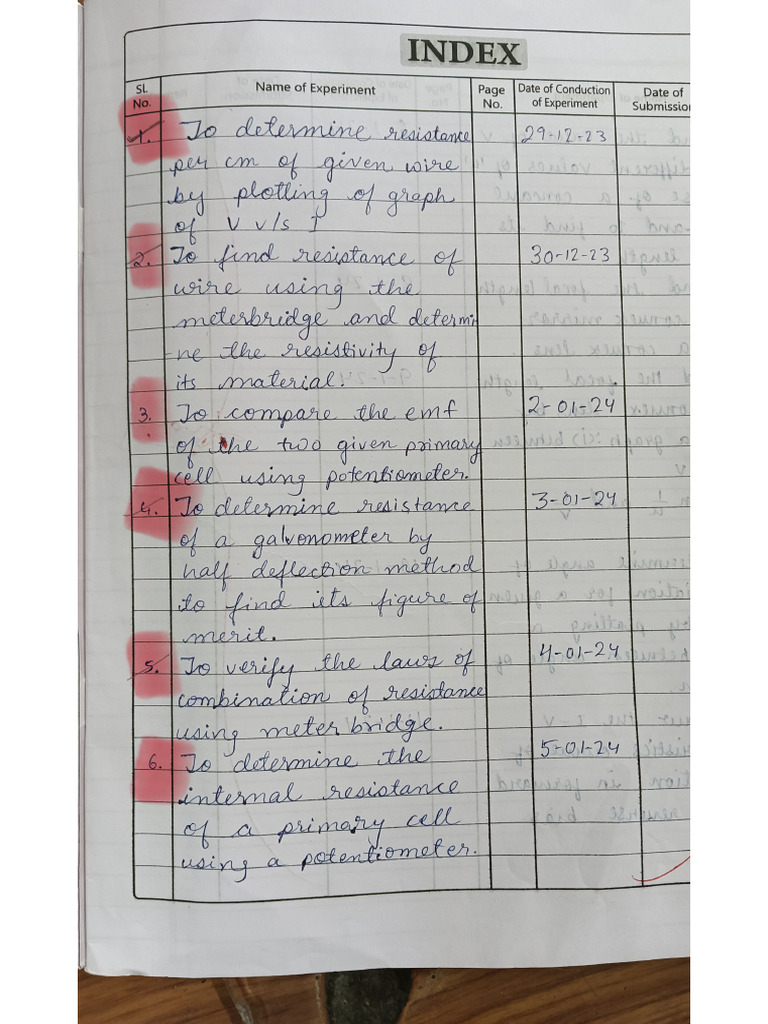 INDEX
Sl. No. Name of Experiment Page No. Date of Conduction of Experiment Date of Submission
1. To determine resistance 29-12-23
per cm of given wire
by plotting of graph
of V v/s I
2. To find resistance of 30-12-23
wire using the
meterbridge and determi
-ne the resistivity of
its material.
3. To compare the emf 2-01-24
of the two given primary
cell using potentiometer.
4. To determine resistance 3-01-24
of a galvonometer by
half deflection method
to find its figure of
merit.
5. To verify the laws of 4-01-24
combination of resistance
using meter bridge.
6. To determine the 5-01-24
internal resistance
of a primary cell
using a potentiometer.